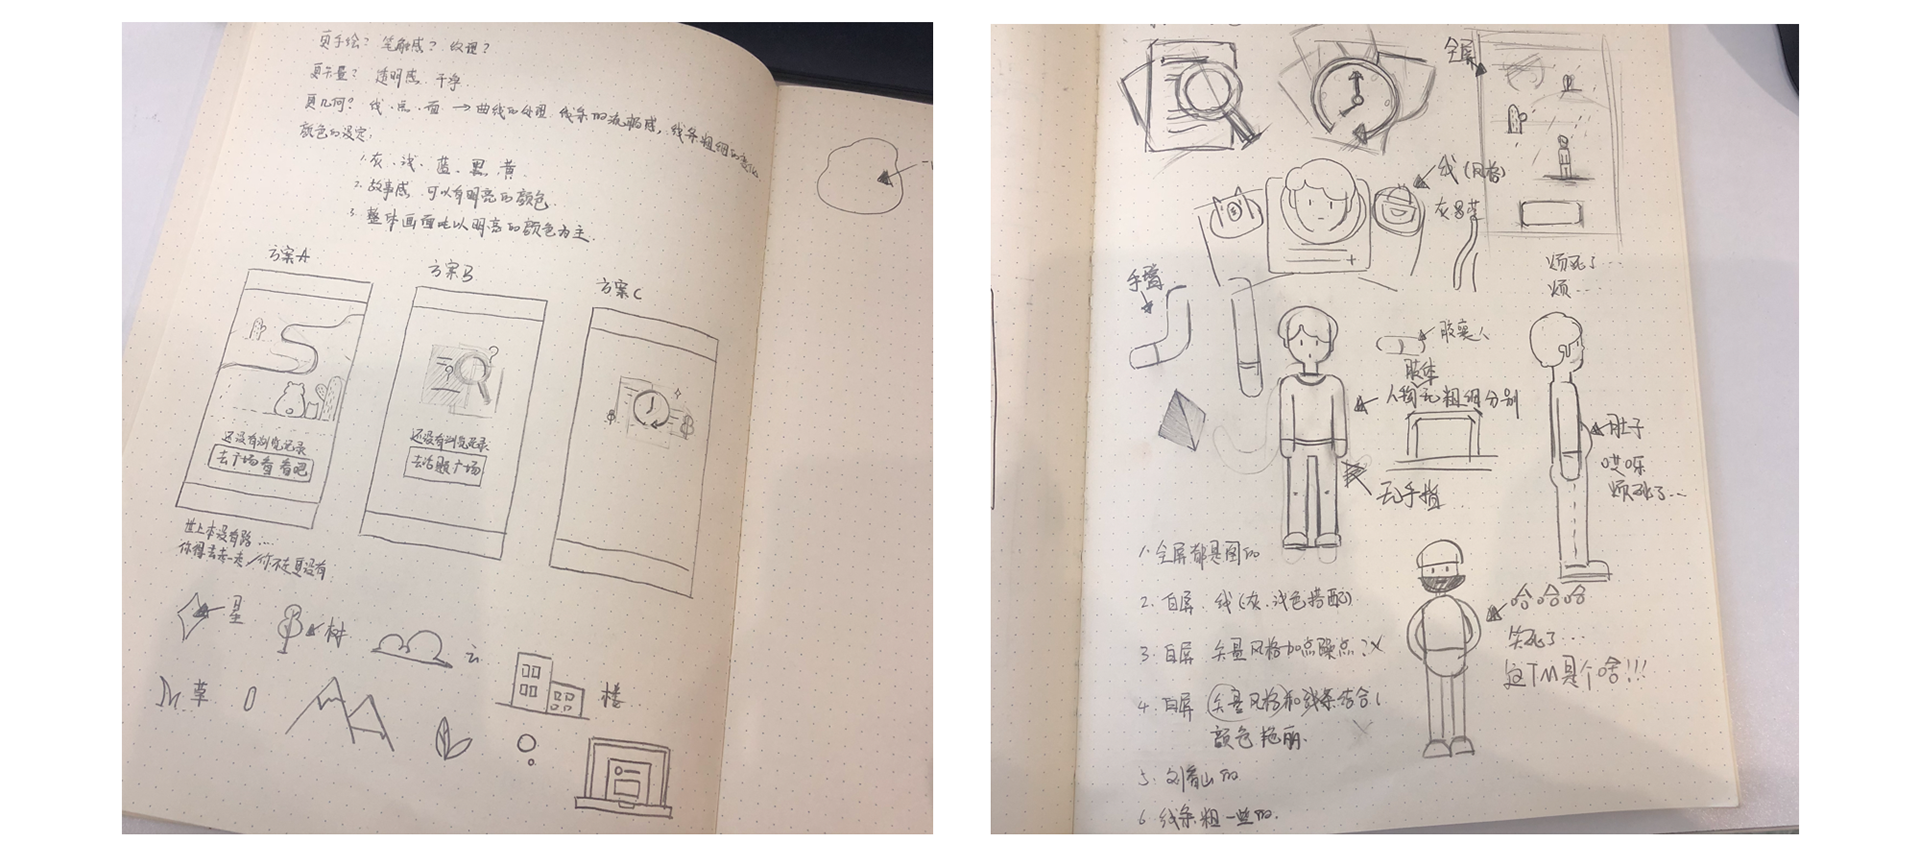 更手绘？ 笔触感？ 纹理？
更矢量？ 透明感、干净
更几何？ 线、点、面 → 曲线的处理 线条的流畅感，线条粗细的变化
颜色的设定：
1. 灰、浅、蓝、黑、黄
2. 故事感 可以有明亮的颜色
3. 整体画面比以明亮的颜色为主.
方案A
方案B
方案C
还没有浏览记录
去广场看看吧
还没有浏览记录
去话题广场
世上本没有路...
你得去走一走/你不走更没有
星
树
云
草
楼
全屏
线(风格)
灰
手臂
烦死了...
烦...
胶囊人
肢体
人物无粗细分别
肚子
哎呀
烦死了...
无手指
1. 全屏都是图的
2. 白屏 线(灰、浅色搭配)
3. 白屏 矢量风格加点噪点
4. 白屏 矢量风格和线条结合
颜色艳丽.
5. 刘看山的
6. 线条粗一些的.
哈哈哈
笑死了...
这TM是个啥!!!